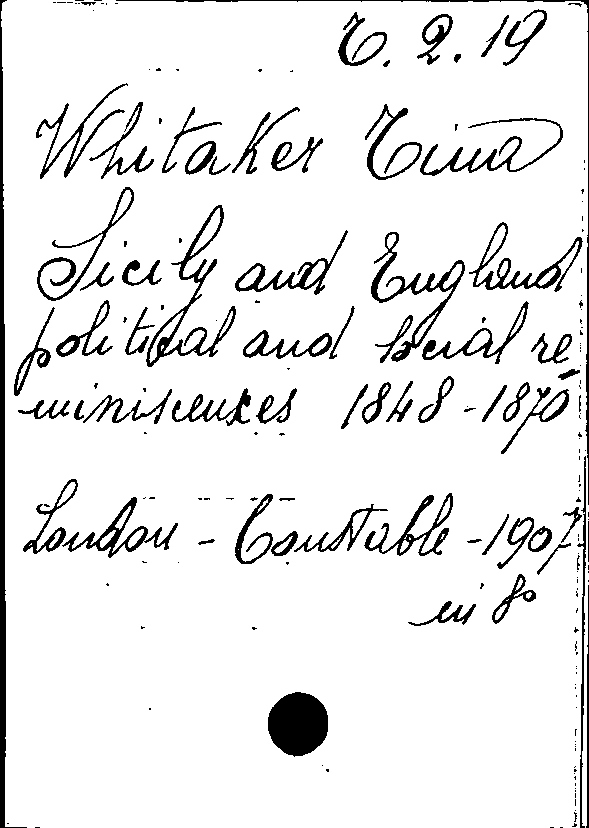 C. 2. 19
Whitaker Tina
Sicily and England
political and social re=
miniscences 1848-1870
London - Constable - 1907
in 8°